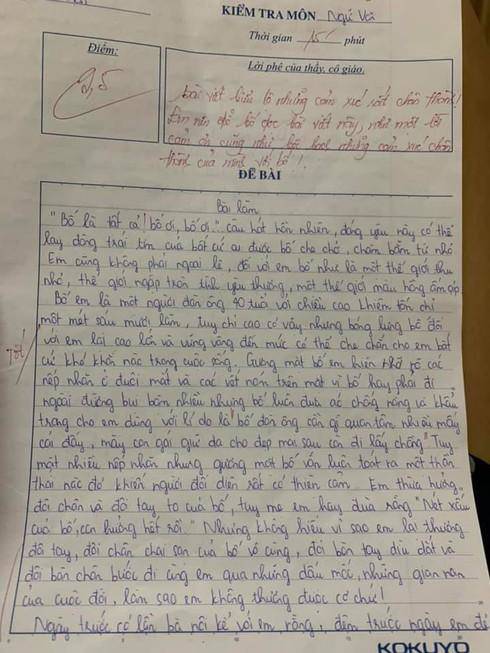 KIỂM TRA MÔN Ngữ Văn
Thời gian 15 phút
Điểm:
Lời phê của thầy, cô giáo.
bài viết biểu lộ những cảm xúc rất chân thành!
Em nên để bố đọc bài viết này, như một lời
cảm ơn cũng như bộc bạch những cảm xúc chân
thành của mình với bố!
ĐỀ BÀI
Bài làm
"Bố là tất cả! bố ơi, bố ơi." câu hát hồn nhiên, đáng yêu này có thể
lay động trái tim của bất cứ ai được bố che chở, chăm bẵm từ nhỏ
Em cũng không phải ngoại lệ, đối với em bố như là một thế giới thu
nhỏ, thế giới ngập tràn tình yêu thương, một thế giới màu hồng ấm áp
Bố em là một người đàn ông 40 tuổi với chiều cao khiêm tốn chỉ
một mét sáu mươi lăm, tuy chỉ cao có vậy nhưng bóng lưng bố đối
với em lại cao lớn và vững vàng đến mức có thể che chắn cho em bất
cứ khó khăn nào trong cuộc sống. Gương mặt bố em hiện rõ các
nếp nhăn ở đuôi mắt và các vết nám trên mặt vì bố hay phải đi
ngoài đường bụi bặm nhiều nhưng bố luôn đưa áo chống nắng và khẩu
trang cho em dùng với lí do là "bố đàn ông cần gì quan tâm nhiều mấy
cái đấy, mày con gái giữ da cho đẹp mai sau còn đi lấy chồng" Tuy
mặt nhiều nếp nhăn nhưng gương mặt bố vẫn luôn toát ra một thần
thái nào đó khiến người đối diện rất có thiện cảm. Em thừa hưởng
đôi chân và đôi tay to của bố, tuy mẹ em hay đùa rằng "Nét xấu
của bố, con hưởng hết rồi." Nhưng không hiểu vì sao em lại thương
đôi tay, đôi chân chai sạn của bố vô cùng, đôi bàn tay dìu dắt và
đôi bàn chân bước đi cùng em qua những dấu mốc, những gian nan
của cuộc đời, làm sao em không thương được cơ chứ!
Ngày trước có lần bà nội kể với em rằng, đêm trước ngày em đẻ
Tốt
KOKUYO